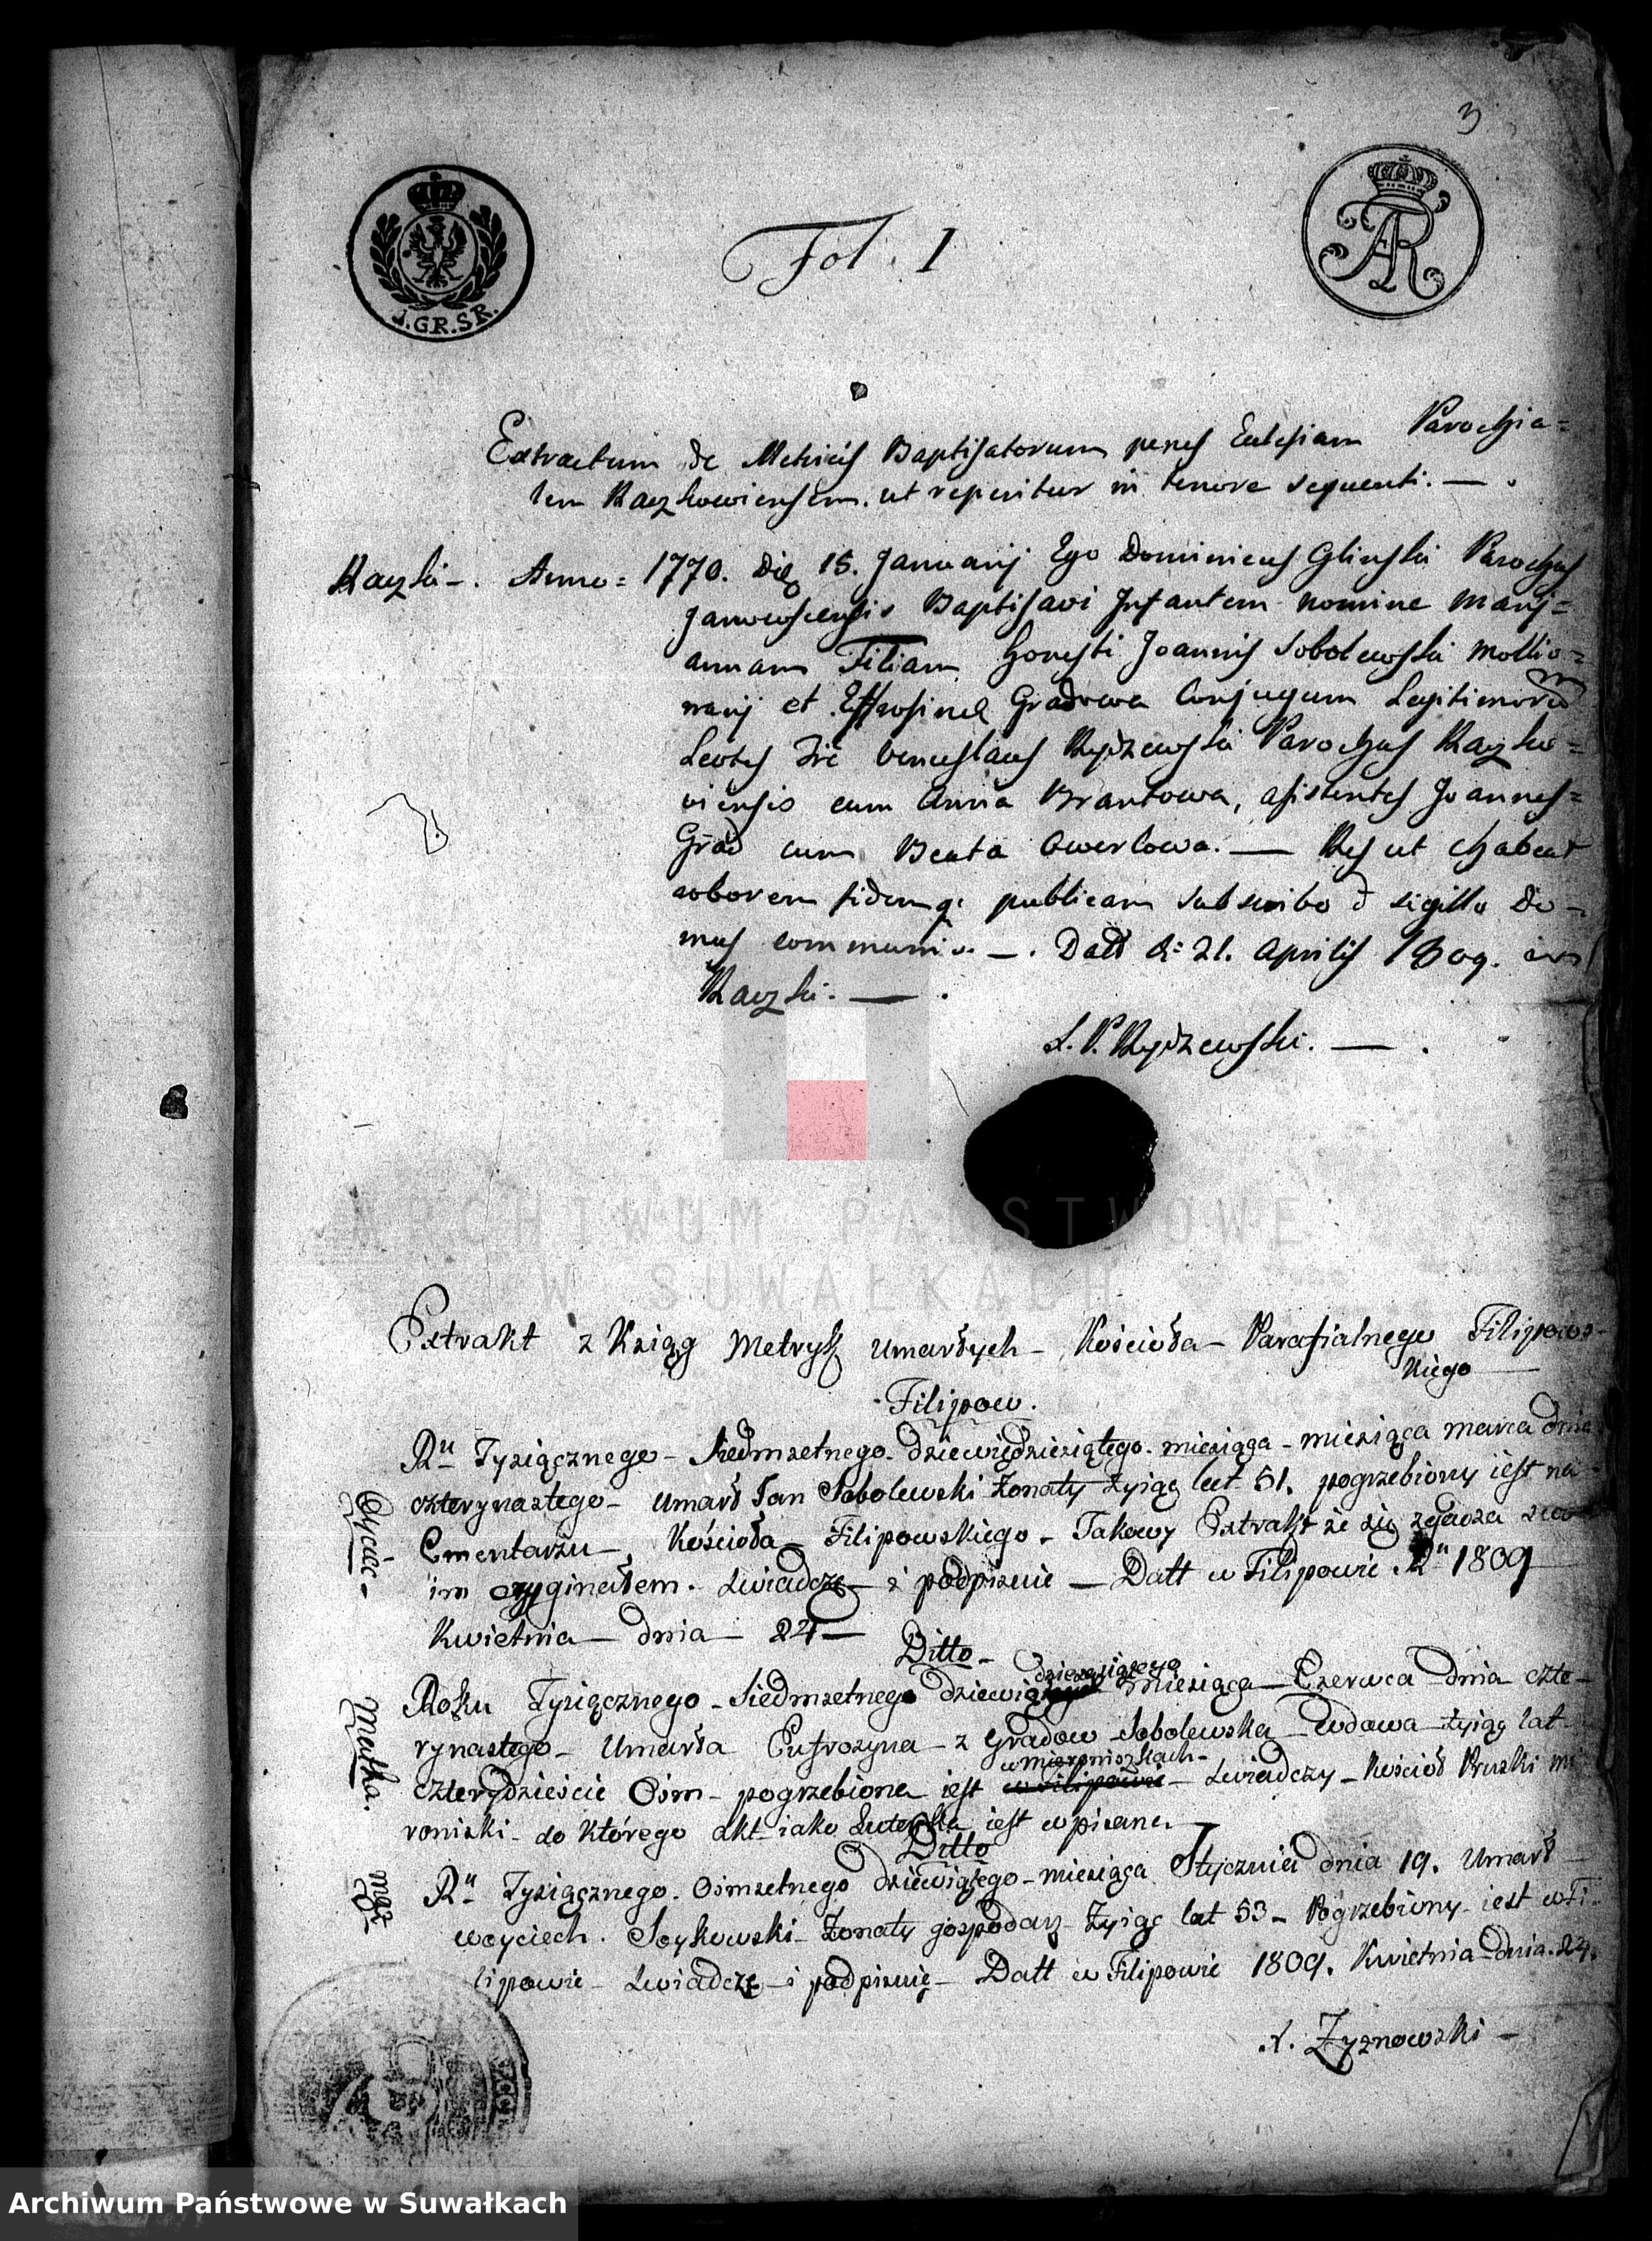 3
J.GR.SR.
Fol. I
FAR
Extractum de Metricis Baptisatorum penes Eclesiam Parochia=
lem Raczkowiensem. ut reperitur in tenore sequenti. — .
Raczki —. Anno = 1770. Die 15. Januarij Ego Dominicus Glinski Parochus
Janowscensis Baptisavi Infantem nomine Marij=
annam Filiam Honesti Joannis Sobolewski
narij et Effrosinae Gradowa Conjugum Legitimorum
Venceslaus Rydzewski Parochus Raczko=
viensis cum Anna Brantowa, asistentes Joannes=
Grad cum Beata Owerlowa. — ut
roborem fidemq; publicam subscribo & sigillo Do=
mus communio. —. Datt d: 21. Aprilis 1809. in
Raczki. — .
X. P. Rydzewski. — .
ARCHIWUM PAŃSTWOWE
W SUWAŁKACH
Extrakt z Ksiąg Metryk Umarłych – Kościoła – Parafialnego Filipows-
kiego
Filipow.
Ru Tysiącznego – Siedmsetnego – dziewiędziesiątego – miesiąca – miesiąca marca dnia
czterynastego – Umarł Jan Sobolewski Żonaty Żyiąc lat 51. pogrzebiony iest na
Oycie –
Cmentarzu – Kościoła – Filipowskiego – Takowy Extrakt że się zgadza zwo
im oryginałem – Swiadczę – i podpisuie – Datt w Filipowie Ru 1809
Kwietnia – dnia – 24 –
Ditto –
dziesiątego
Roku Tysiącznego – Siedmsetnego Miesiąca – Czerwca dnia czte–
Matka.
rynastego – Umarła Eufrozyna – z Gradow – Sobolewska – Wdowa – Żyiąc lat
czterydzieście Ośm – pogrzebiona iest w Filipowie – Swiadczy – Kościoł Pruski mi
roniski – do którego akt iako Luterska iest wpisana.
Ditto
mąż
Ru Tysiącznego – Ośmsetnego dziewiątego – miesiąca Stycznia dnia 19. Umarł
Woyciech – Soykowski – Żonaty gospodarz – Żyiąc lat 53 – Pogrzebiony iest w Fi
lipowie – Swiadczę – i podpisuię – Datt w Filipowie 1809. Kwietnia – dnia. 24.
X. Żyznowski –
Archiwum Państwowe w Suwałkach